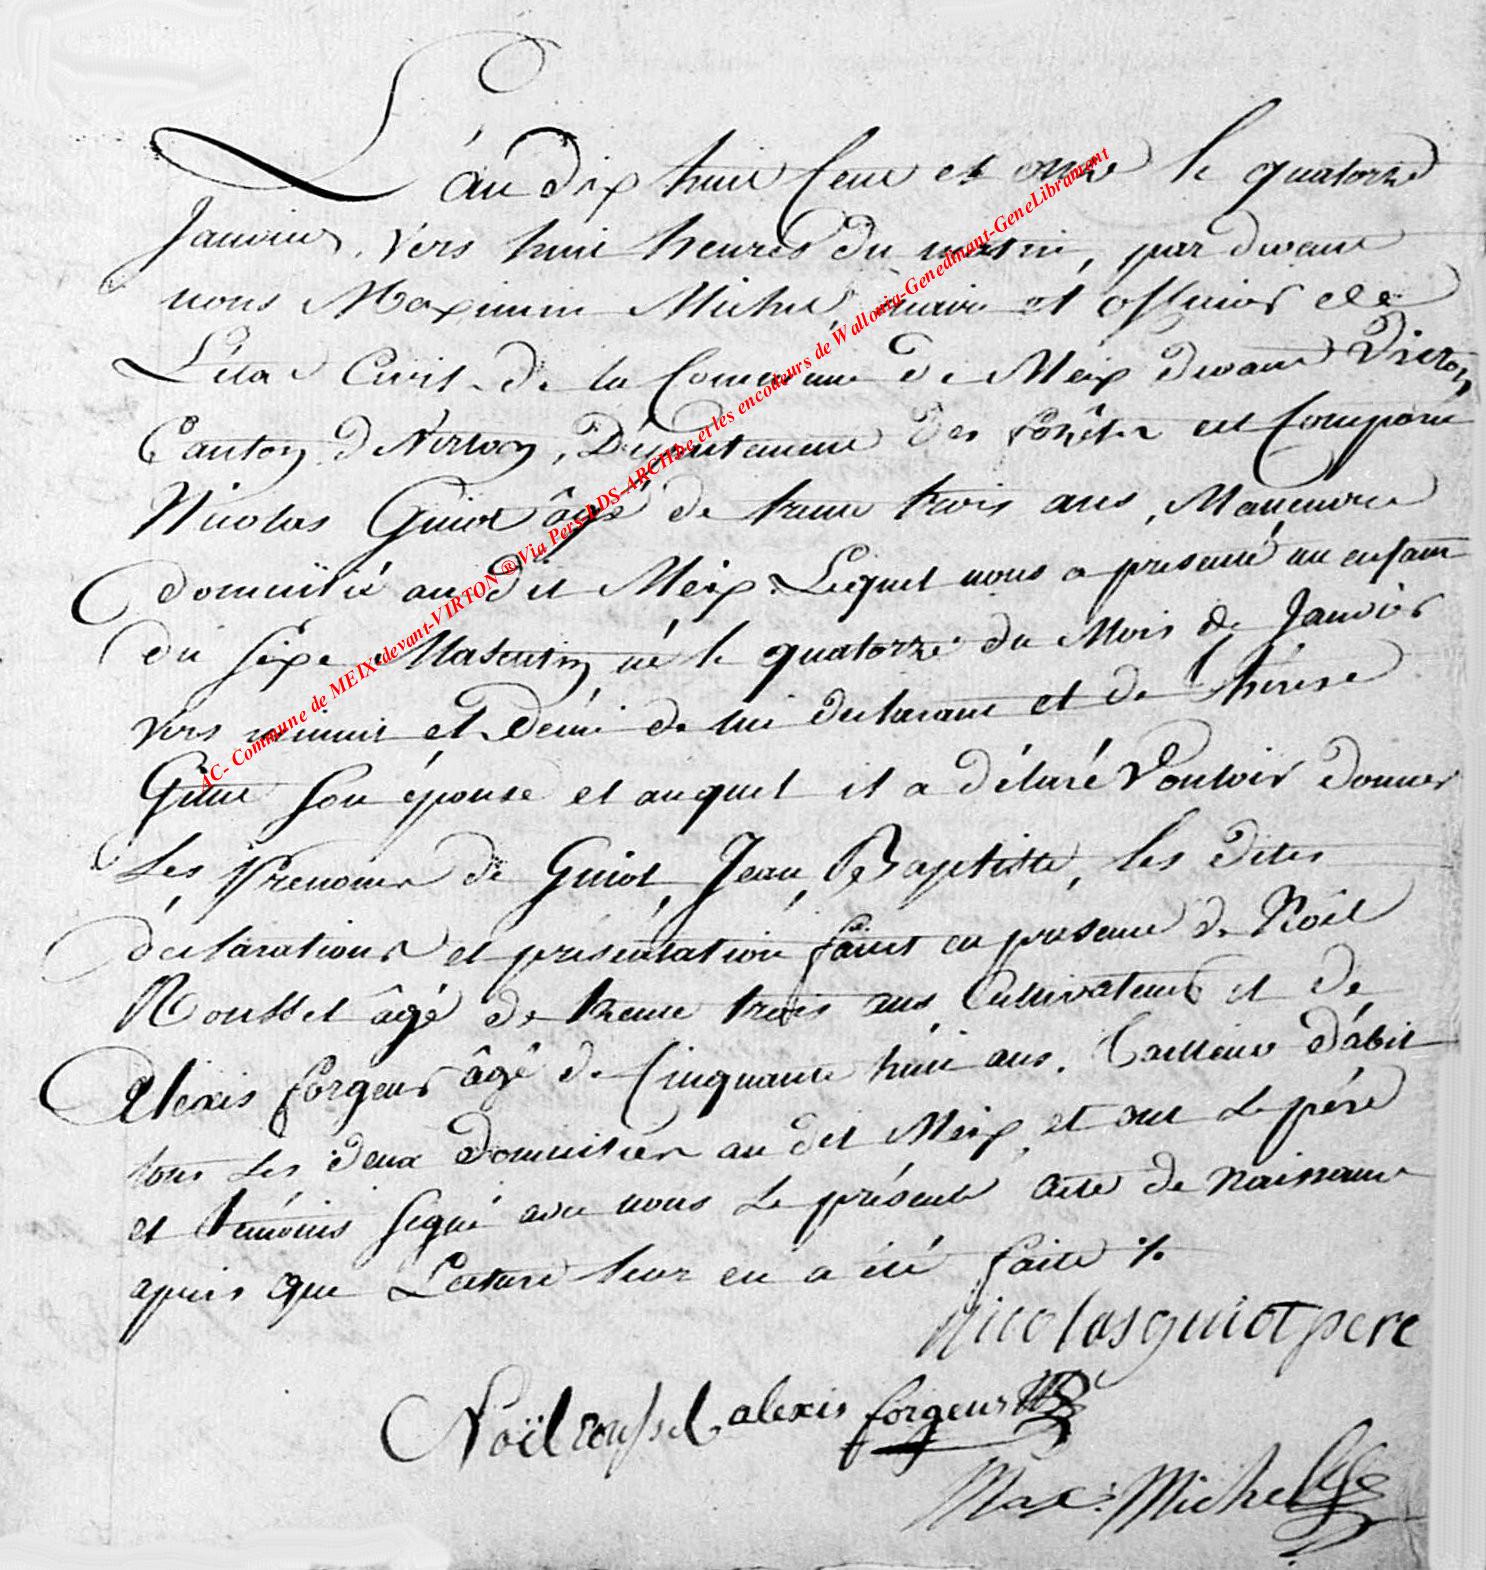 L'an dix huit Cent et onze le quatorze
Janvier, vers huit heures du matin, par devant
nous Maximin Michel, maire et officier de
L'état Civil de la Commune de Meix devant Virton
Canton de Virton, Département des forêts est Comparu
Nicolas Guiot âgé de trente trois ans, Manœuvre
domicilié au dit Meix. Lequel nous a présenté un enfant
du sexe Masculin né le quatorze du Mois de Janvier
vers minuit et Demi de lui déclarant et de Thérèse
son épouse et auquel il a déclaré Vouloir donner
Les Prenoms de Guiot Jean Baptiste, les dites
déclarations et présentation faites en présence de Noël
Rousset âgé de trente trois ans Cultivateur et de
Alexis forgeur âgé de Cinquante huit ans. Tailleur d'abit
tous Les deux Domiciliés au dit Meix, et ont Le père
et témoins signé avec nous Le présente acte de Naissance
après que Lecture leur en a été faite %
Nicolas guiot pere
Noël roussel alexis forgeur
Max: Michel
AC- Commune de MEIX-devant-VIRTON ® Via Pers-LDS-ARCH.be et les encodeurs de Wallonia-Genedinant-GeneLibramont